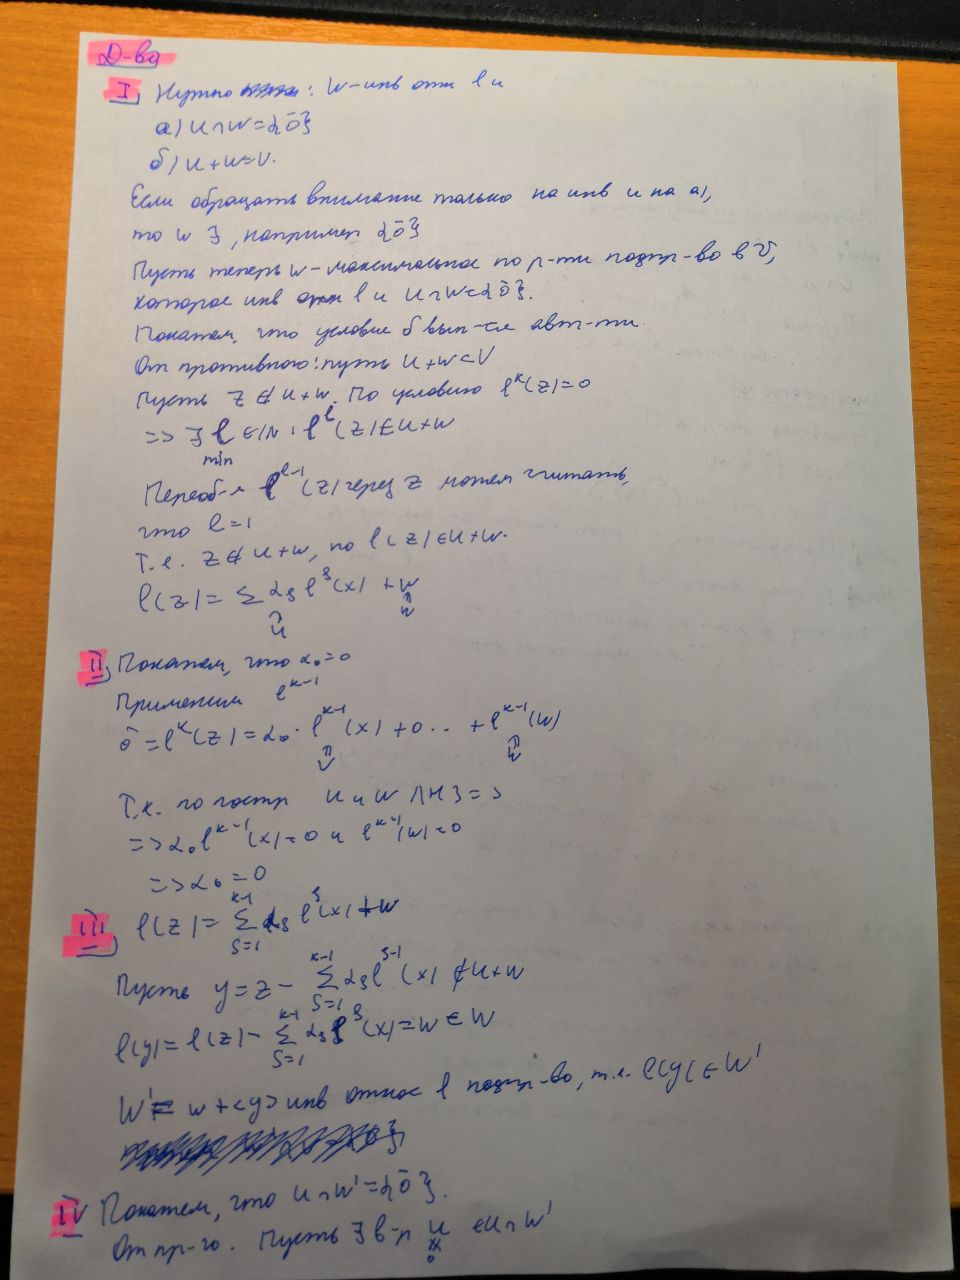 Д-во
I Нужно : W-инв отн φ и
а) U∩W={0̄}
б) U+W=V.
Если обращать внимание только на инв и на а),
то W ∃, например {0̄}
Пусть теперь W-максимальное по р-ти подпр-во в V,
которое инв отн φ и U∩W={0̄}.
Покажем, что условие б вып-ся авт-ти.
От противного: пусть U+W⊂V
Пусть z∉U+W. По условию φ^k(z)=0
=> ∃ l ∈ℕ: φ^l(z)∈U+W
min
Переоб-я φ^{l-1}(z) через z можем считать,
что l=1
Т.е. z∉U+W, но φ(z)∈U+W.
φ(z)= Σ α_s φ^s(x) + w
U W
II Покажем, что α₀=0
Применим φ^{k-1}
0̄=φ^k(z)=α₀·φ^{k-1}(x)+0...+φ^{k-1}(w)
U W
Т.к. по постр U и W ЛНЗ =>
=>α₀φ^{k-1}(x)=0 и φ^{k-1}(w)=0
=>α₀=0
III φ(z)= Σ_{s=1}^{k-1} α_s φ^s(x)+w
Пусть y=z- Σ_{s=1}^{k-1} α_s φ^{s-1}(x) ∉U+W
φ(y)=φ(z)- Σ_{s=1}^{k-1} α_s φ^s(x)=w∈W
W'= W+<y> инв относ φ подпр-во, т.к. φ(y)∈W'
IV Покажем, что U∩W'={0̄}.
От пр-го. Пусть ∃ в-р u ∈U∩W'
≠
0